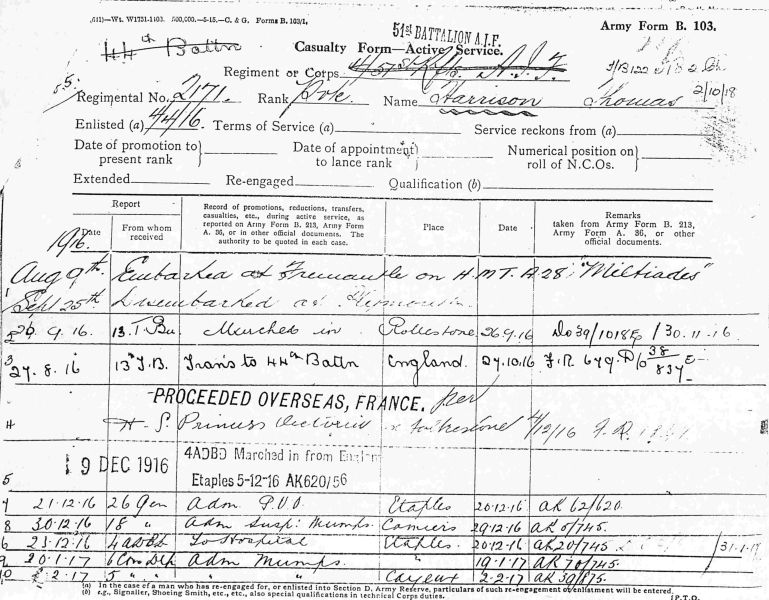 (11)—Wt. W1731-1103. 500,000.—5-15.—C. & G. Forms B. 103/1.
Army Form B. 103.
51st BATTALION A.I.F.
44th Battn
Casualty Form—Active Service.
Regiment or Corps A.I.F.
2/10/18
Regimental No. 2171. Rank Pte. Name Harrison Thomas
Enlisted (a) 4/4/16. Terms of Service (a) Service reckons from (a)
Date of promotion to present rank
Date of appointment to lance rank
Numerical position on roll of N.C.Os.
Extended Re-engaged Qualification (b)
Report
Date
From whom received
Record of promotions, reductions, transfers, casualties, etc., during active service, as reported on Army Form B. 213, Army Form A. 36, or in other official documents. The authority to be quoted in each case.
Place
Date
Remarks
taken from Army Form B. 213, Army Form A. 36, or other official documents.
1916.
Aug 9th. Embarked at Fremantle on H.M.T. A28 "Miltiades"
1 Sept 25th Disembarked at
2 26.9.16. 13.T.Bn. Marched in Rollestone 26.9.16 Do 39/1018 /30.11.16
3 27.8.16 13th T.B. Trans to 44th Battn England. 27.10.16 38
PROCEEDED OVERSEAS, FRANCE. per
4 Princess Victoria Folkestone 4/12/16
19 DEC 1916 4ADBD Marched in from England
5 Etaples 5-12-16 AK620/56
7 21.12.16 26 Gen Adm P.U.O Etaples 20.12.16 AK 62/620.
8 30.12.16 18 " Adm Susp: Mumps. Camiers 29.12.16 AK 5/745.
6 23.12.16 4 ADBD To Hospital Etaples. 20.12.16 AK20/745 /31.1.17
9 20.1.17 6 Con Dep Adm Mumps. " 19.1.17 AK 70/745.
10 2.17 5 " " " Cayeux 2.2.17 AK 39/875.
(a) In the case of a man who has re-engaged for, or enlisted into Section D, Army Reserve, particulars of such re-engagement or enlistment will be entered.
(b) e.g., Signaller, Shoeing Smith, etc., etc., also special qualifications in technical Corps duties.
[P.T.O.